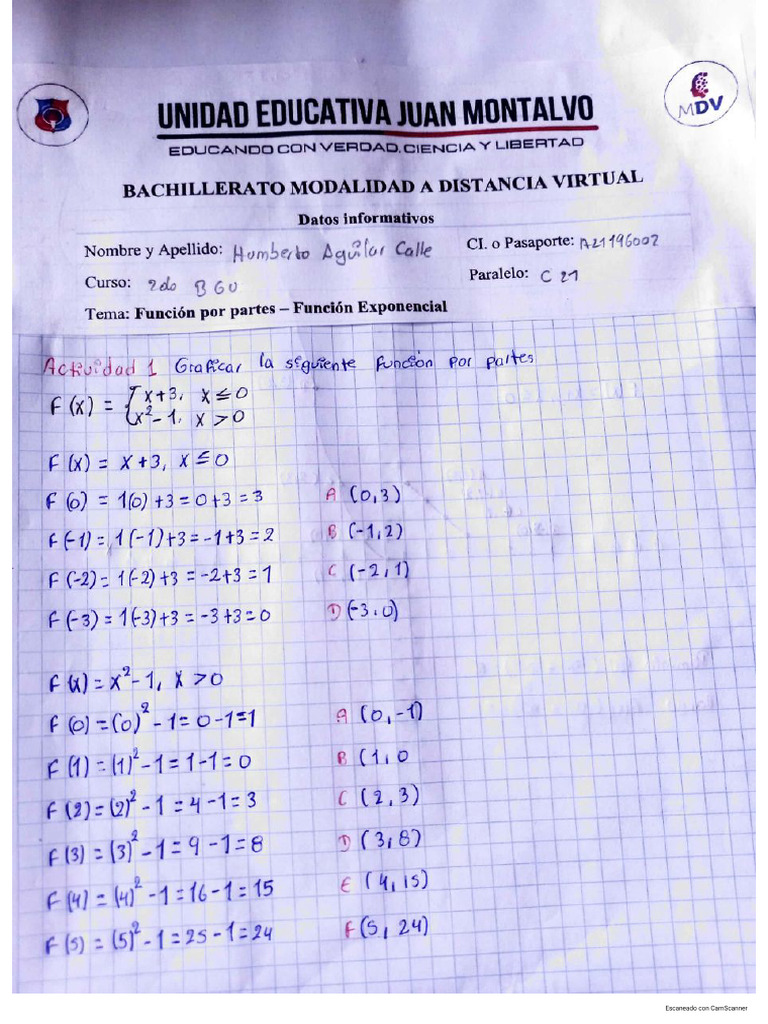 UNIDAD EDUCATIVA JUAN MONTALVO
MDV
EDUCANDO CON VERDAD, CIENCIA Y LIBERTAD
BACHILLERATO MODALIDAD A DISTANCIA VIRTUAL
Datos informativos
Nombre y Apellido: Humberto Aguilar Calle CI. o Pasaporte: A21196002
Curso: 2do BGU Paralelo: C 21
Tema: Función por partes – Función Exponencial
Actividad 1 Graficar la siguiente función por partes
F(x) = { x+3, x ≤ 0
x² - 1, x > 0
F(x) = x+3, x ≤ 0
F(0) = 1(0)+3 = 0+3 = 3 A (0,3)
F(-1) = 1(-1)+3 = -1+3 = 2 B (-1,2)
F(-2) = 1(-2)+3 = -2+3 = 1 C (-2,1)
F(-3) = 1(-3)+3 = -3+3 = 0 D (-3,0)
F(x) = x² - 1, x > 0
F(0) = (0)² - 1 = 0-1 = 1 A (0,-1)
F(1) = (1)² - 1 = 1-1 = 0 B (1,0
F(2) = (2)² - 1 = 4-1 = 3 C (2,3)
F(3) = (3)² - 1 = 9-1 = 8 D (3,8)
F(4) = (4)² - 1 = 16-1 = 15 E (4,15)
F(5) = (5)² - 1 = 25-1 = 24 F (5,24)
Escaneado con CamScanner